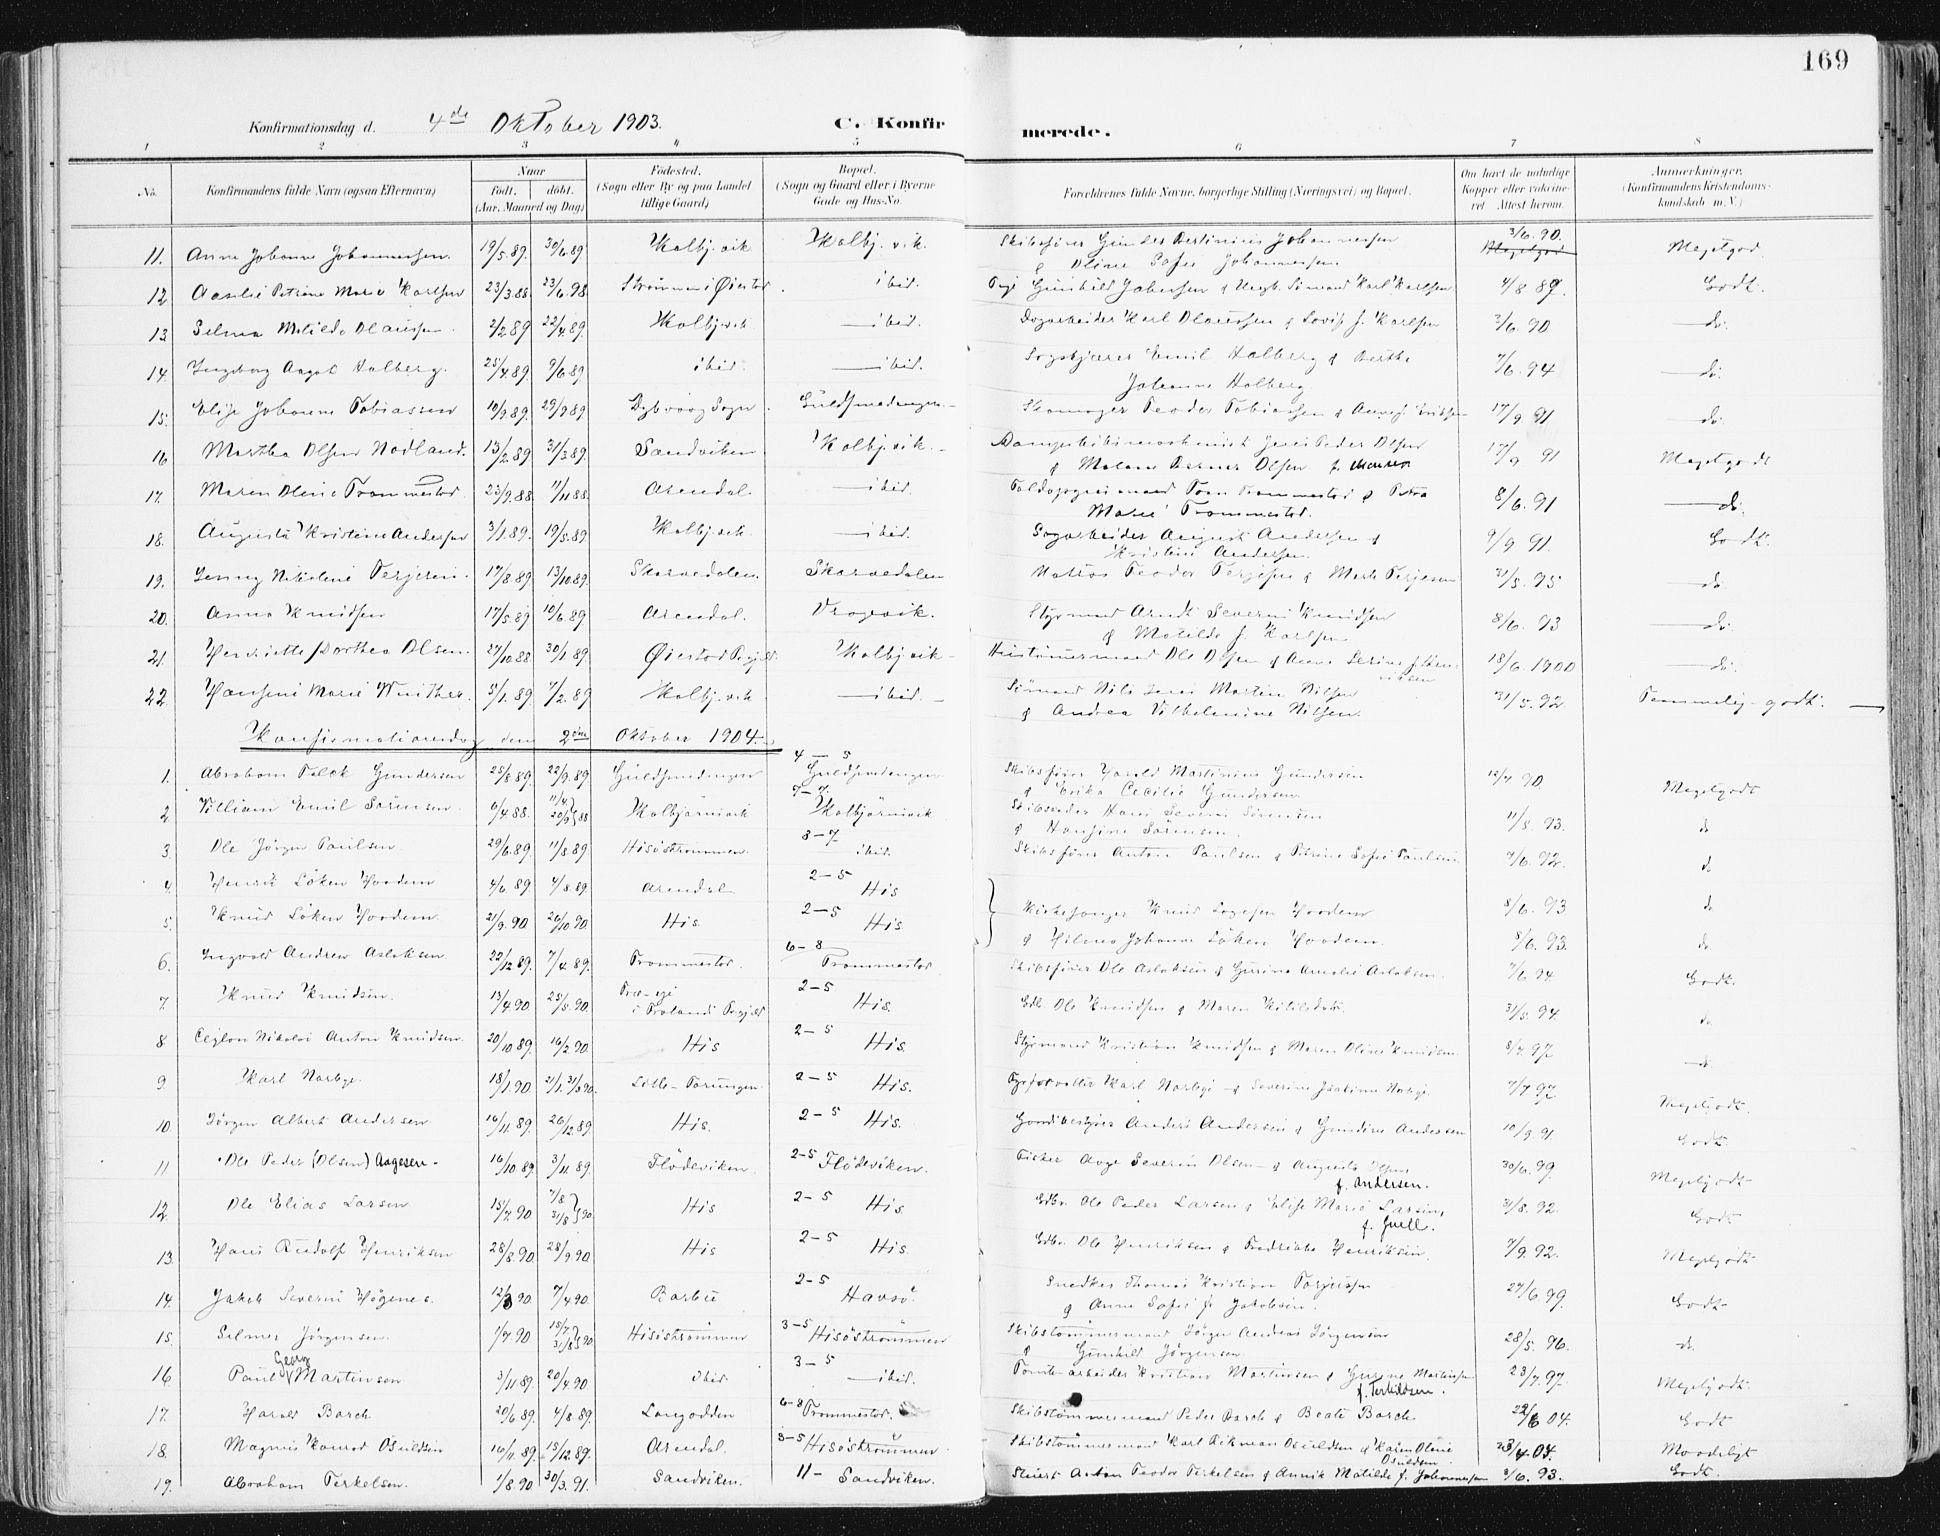 169
Konfirmationsdag d. 4de Oktober 1903. C. Konfirmerede.
1 2 3 4 5 6 7 8
No. Konfirmandens fulde Navn (ogsaa Efternavn) Naar født. døbt. (Aar, Maaned og Dag) Fødested. (Sogn eller By og paa Landet tillige Gaard) Bopæl. (Sogn og Gaard eller i Byerne Gade og Hus-No. Forældrenes fulde Navne, borgerlige Stilling (Næringsvei) og Bopæl. Om havt de naturlige Kopper eller vaccineret Attest herom. Anmerkninger. (Konfirmandens Kristendomskundskab m. V.)
11. Anna Johanne Johannessen. 19/5.89. 30/6.89 Kolbj.vik Kolbj.vik. Skibsfører Gunder Bertinius Johannessen 3/6.90. Megetgod
& Oline Sofie Johannessen.
12 Aaselie Petrine Marie Karlsen 23/3.88. 23/6.98 Strømmen i Øiestad ibid. Pige Gunhild Jakobsen & Ungk. Simund Karl Karlsen 4/8 89. Godt.
13. Selma Matilde Olaussen. 2/2 89 22/4 89. Kolbj.vik — ibid. Dagarbeider Karl Olaussen & Lovise f. Karlsen 3/6.90 — do.
14. Ingeborg Aagot Halberg. 25/4.89. 9/6.89 ibid. — ibid. Sagskjærer Emil Halberg & Berthe 7/6.94 — do.
Johanne Halberg
15. Elise Johanne Tobiassen 10/9.89. 29/9.89 Dybvaag Sogn. Guldsmedengen. Skomager Teodor Tobiassen & Anne f. Eriksen 17/9 91 do.
16 Martha Olsen Nodland. 13/2.89 31/3.89. Sandviken Kolbj.vik. Jens Peder Olsen 17/9 91 Megetgodt
& Malene Olsen f.
17. Maren Oline Trommestad. 23/9.88. 11/11 88. Arendal. — ibid. Tron Trommestad & Petra 8/6.91 — do.
Marie Trommestad.
18. Augusta Kristine Andersen 3/1.89. 19/5.89. Kolbj.vik. — ibid. Sagarbeider August Andersen & 9/9 91. Godt.
Kristine Andersen.
19. Jenny Nikoline Terjesen. 17/8.89 13/10.89. Skarvedalen. Skarvedalen Matros Teodor Terjesen & Marte Terjesen 31/5.95 — do.
20. Anna Knudsen 17/5.89 10/6.89 Arendal. Vragevik. Styrmand Arndt Severin Knudsen 8/6.93 — do.
& Matilde f. Karlsen
21. Henriette Dorthea Olsen. 27/10.88 30/1.89 Øiestad Prgjeld. Kolbj.vik Ole Olsen & Anne Serine f. 18/6.1900 — do.
22. Hansine Marie Winther. 5/1.89. 7/2.89 Kolbj.vik — ibid. Sømand Nils Jens Martin Nilsen 31/5.92 Temmelig godt.
& Andrea Vilhelmine Nilsen.
Konfirmationsdag den 2den Oktober 1904.
1. Abraham Falck Gundersen 25/8.89. 22/9.89 Guldsmedengen 4 — 3 Guldsmedengen Skibsfører Harald Martinius Gundersen 12/7 90. Megetgodt
& Erika Cecilie Gundersen.
2 William Emil Sørensen. 6/4 88. 11/4 20/9 } 88 Kolbjørnsvik 7—7. Kolbjørnsvik Skibsreder Hans Severin Sørensen 11/5.93. do
& Hansine Sørensen.
3. Ole Jørgen Paulsen. 29/6.89. 11/8.89 Hisøstrømmen. 8—7 ibid. Skibsfører Anton Paulsen & Petrine Sofie Paulsen 7/6.92. do
4. Henrik Løken Hoodem 4/6.89 4/8.89. Arendal 2—5 His
5. Knud Løken Hoodem 21/9.90 26/10.90. His. 2—5 His. Kirkesanger Knud Hoodem 8/6.93 do
& Hilma Johanne Løken Hoodem. 8/6.93. do
6. Ingvald Andrew Aslaksen. 22/12.89. 7/4.89. Trommestad. 6—8 Trommestad Skibsfører Ole Aslaksen & Gurine Amalie Aslaksen. 7/6 94. Godt.
7. Knud Knudsen. 13/4.90 25/5.90. i Frolands Prgjeld 2—5 His. Gdb. Ole Knudsen & Maren 31/5.94. do
8 Ceylon Nikolai Anton Knudsen. 20/10 89. 16/2.90. His 2—5 His. Styrmand Kristian Knudsen & Maren Oline Knudsen. 8/7.97 — do
9. Karl Norbye. 18/1 90 21/1. 31/3 90. Lille-Torungen. 2—5 His. Fyrforvalter Karl Norbye & Severine Norbye. 7/7 97. Megetgodt.
10 Jørgen Albert Andersen 16/11.89. 26/12.89. His. 2—5 His. Gaardbestyrer Anders Andersen & Gundine Andersen 10/9.91. Godt
11 Ole Peder (Olsen) Aagesen. 16/10.89. 3/11.89. Flødeviken. 2—5 Flødeviken. Fisker Aage Severin Olsen & Augusta Olsen 30/6.99. Megetgodt
f. Andersen.
12. Ole Elias Larsen 15/7.90 7/8 31/8 } 90 His 2—5 His. Gdbr. Ole Peder Larsen & Elise Marie Larsen, 31/8.92. Godt
f. Juell.
13. Hans Rudolf Henriksen 28/8.90. 28/9.90. His 2—5 His. Gdbr. Ole Henriksen & Fredrikke Henriksen. 7/9.92. Megetgodt
14. Jakob Severin Høgenes. 12/3 90. 7/4 90. Barbu 2—5 Havsø. Snedker Thomas Kristian Torjussen 27/6.99. Godt
& Anne Sofie f. Jakobsen.
15. Selmer Jørgensen. 1/7 90 15/7 31/8 } 90 Hisøstrømmen 3—5 Hisøstrømmen Skibstømmermand Jørgen Andreas Jørgensen 28/5.96. do.
& Gunhild Jørgensen.
16. Paul Georg Martinsen 3/11 89. 20/4.90. ibid 3—5 — ibid. Tomtearbeider Kristian Martinsen & Gurine Martinsen 23/7.97. Megetgodt
f. Terkildsen.
17. Harald Borch 20/6.89. 4/8 89. Langodden 6—8 Trommestad. Skibstømmermand Peder Borch & Beate Borch. 22/6 04. Godt
18. Magnus Konrad Osuldsen 16/11.89. 15/12.89. Arendal. 3—5 Hisøstrømmen Skibstømmermand Karl Rikman Osuldsen & Karen Oline 23/4.04. Maadeligt
Osuldsen
19. Abraham Terkelsen. 1/8.90 30/3.91. Sandviken. 11— Sandviken. Stuert Anton Teodor Terkelsen & Annik Matilde f. Johannessen 8/6.93. Godt.